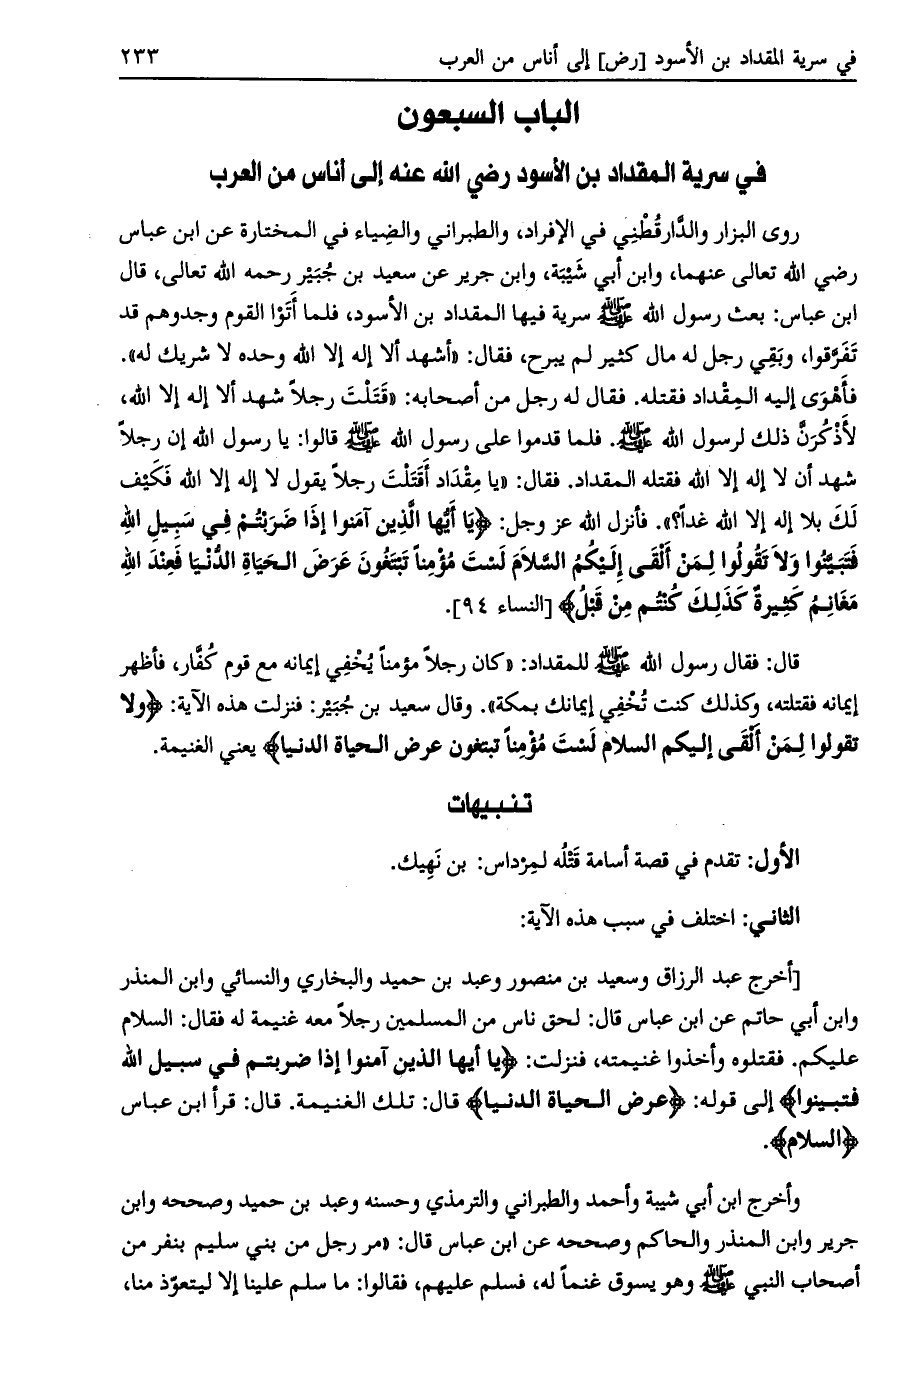 في سرية المقداد بن الأسود [رض] إلى أناس من العرب ٢٣٣
الباب السبعون
في سرية المقداد بن الأسود رضي الله عنه إلى أناس من العرب
روى البزار والدَّارقُطْنِي في الإفراد، والطبراني والضِياء في المختارة عن ابن عباس
رضي الله تعالى عنهما، وابن أبي شَيْبَة، وابن جرير عن سعيد بن جُبَيْر رحمه الله تعالى، قال
ابن عباس: بعث رسول الله ﷺ سرية فيها المقداد بن الأسود، فلما أَتَوْا القوم وجدوهم قد
تَفَرَّقوا، وبَقِي رجل له مال كثير لم يبرح، فقال: «أشهد ألا إله إلا الله وحده لا شريك له».
فأَهْوَى إليه المِقْداد فقتله. فقال له رجل من أصحابه: «قَتَلْتَ رجلاً شهد ألا إله إلا الله،
لأَذْكُرَنَّ ذلك لرسول الله ﷺ. فلما قدموا على رسول الله ﷺ قالوا: يا رسول الله إن رجلاً
شهد أن لا إله إلا الله فقتله المقداد. فقال: «يا مِقْدَاد أَقَتَلْتَ رجلاً يقول لا إله إلا الله فَكَيْف
لَكَ بلا إله إلا الله غداً؟». فأنزل الله عز وجل: ﴿يَا أَيُّها الَّذِين آمَنوا إذَا ضَرَبْتُمْ فِي سَبِيلِ اللهِ
فَتَبَيَّنُوا وَلاَ تَقُولُوا لِمَنْ أَلْقَى إِلَيْكُمُ السَّلاَمَ لَسْتَ مُؤْمِناً تَبْتَغُونَ عَرَضَ الحَيَاةِ الدُّنْيَا فَعِنْدَ اللهِ
مَغَانِمُ كَثِيرةٌ كَذَلِكَ كُنْتُم مِنْ قَبْلُ﴾ [النساء ٩٤].
قال: فقال رسول الله ﷺ للمقداد: «كان رجلاً مؤمناً يُخْفِي إيمانه مع قوم كُفَّار، فأظهر
إيمانه فقتلته، وكذلك كنت تُخْفِي إيمانك بمكة». وقال سعيد بن جُبَيْر: فنزلت هذه الآية: ﴿ولا
تقولوا لِمَنْ أَلْقَى إليكم السلام لَسْتَ مُؤْمِناً تبتغون عرض الحياة الدنيا﴾ يعني الغنيمة.
تنبيهات
الأول: تقدم في قصة أسامة قَتْلُه لمِرْداس: بن نَهِيك.
الثاني: اختلف في سبب هذه الآية:
[أخرج عبد الرزاق وسعيد بن منصور وعبد بن حميد والبخاري والنسائي وابن المنذر
وابن أبي حاتم عن ابن عباس قال: لحق ناس من المسلمين رجلاً معه غنيمة له فقال: السلام
عليكم. فقتلوه وأخذوا غنيمته، فنزلت: ﴿يا أيها الذين آمنوا إذا ضربتم في سبيل الله
فتبينوا﴾ إلى قوله: ﴿عرض الحياة الدنيا﴾ قال: تلك الغنيمة. قال: قرأ ابن عباس
﴿السلام﴾.
وأخرج ابن أبي شيبة وأحمد والطبراني والترمذي وحسنه وعبد بن حميد وصححه وابن
جرير وابن المنذر والحاكم وصححه عن ابن عباس قال: «مر رجل من بني سليم بنفر من
أصحاب النبي ﷺ وهو يسوق غنماً له، فسلم عليهم، فقالوا: ما سلم علينا إلا ليتعوّذ منا،